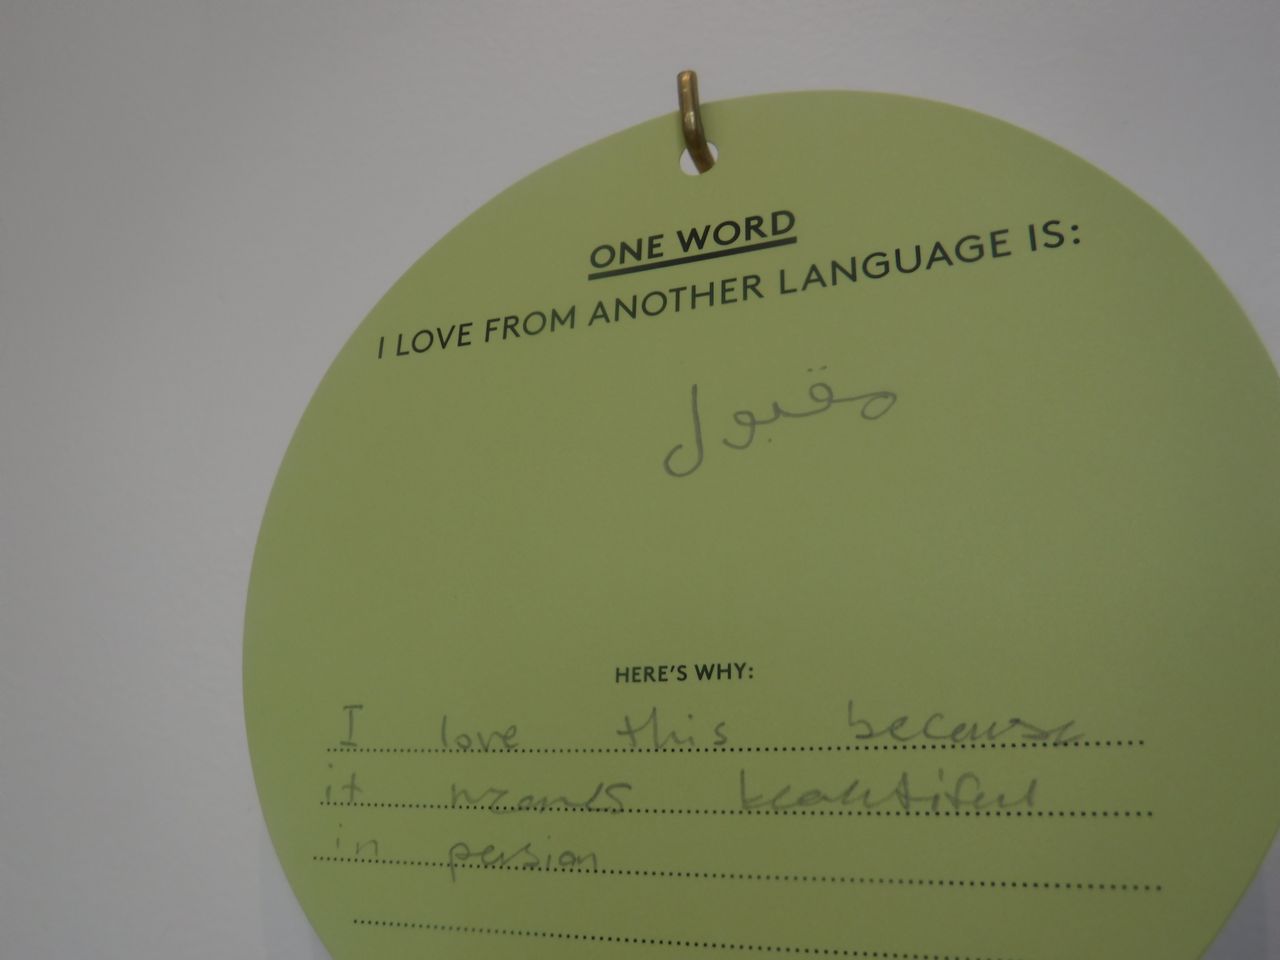 ONE WORD
I LOVE FROM ANOTHER LANGUAGE IS:
مقبول
HERE'S WHY:
I love this because
it means beautiful
in persian